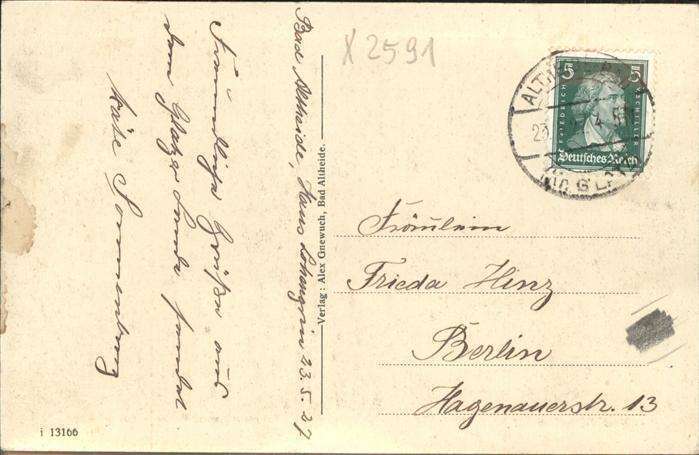 Bad Altheide, Haus Lohengrin 23.5.27
Freundliche Grüße aus
dem Glatzer Lande sendet
Käte Sonnenburg
Verlag: Alex Gnewuch, Bad Altheide.
i 13166
X 2591
5 5
FRIEDRICH V SCHILLER
Deutsches Reich
ALTH
23. 5
(Kr. GLATZ)
Fräulein
Frieda Hinz
Berlin
Hagenauerstr. 13